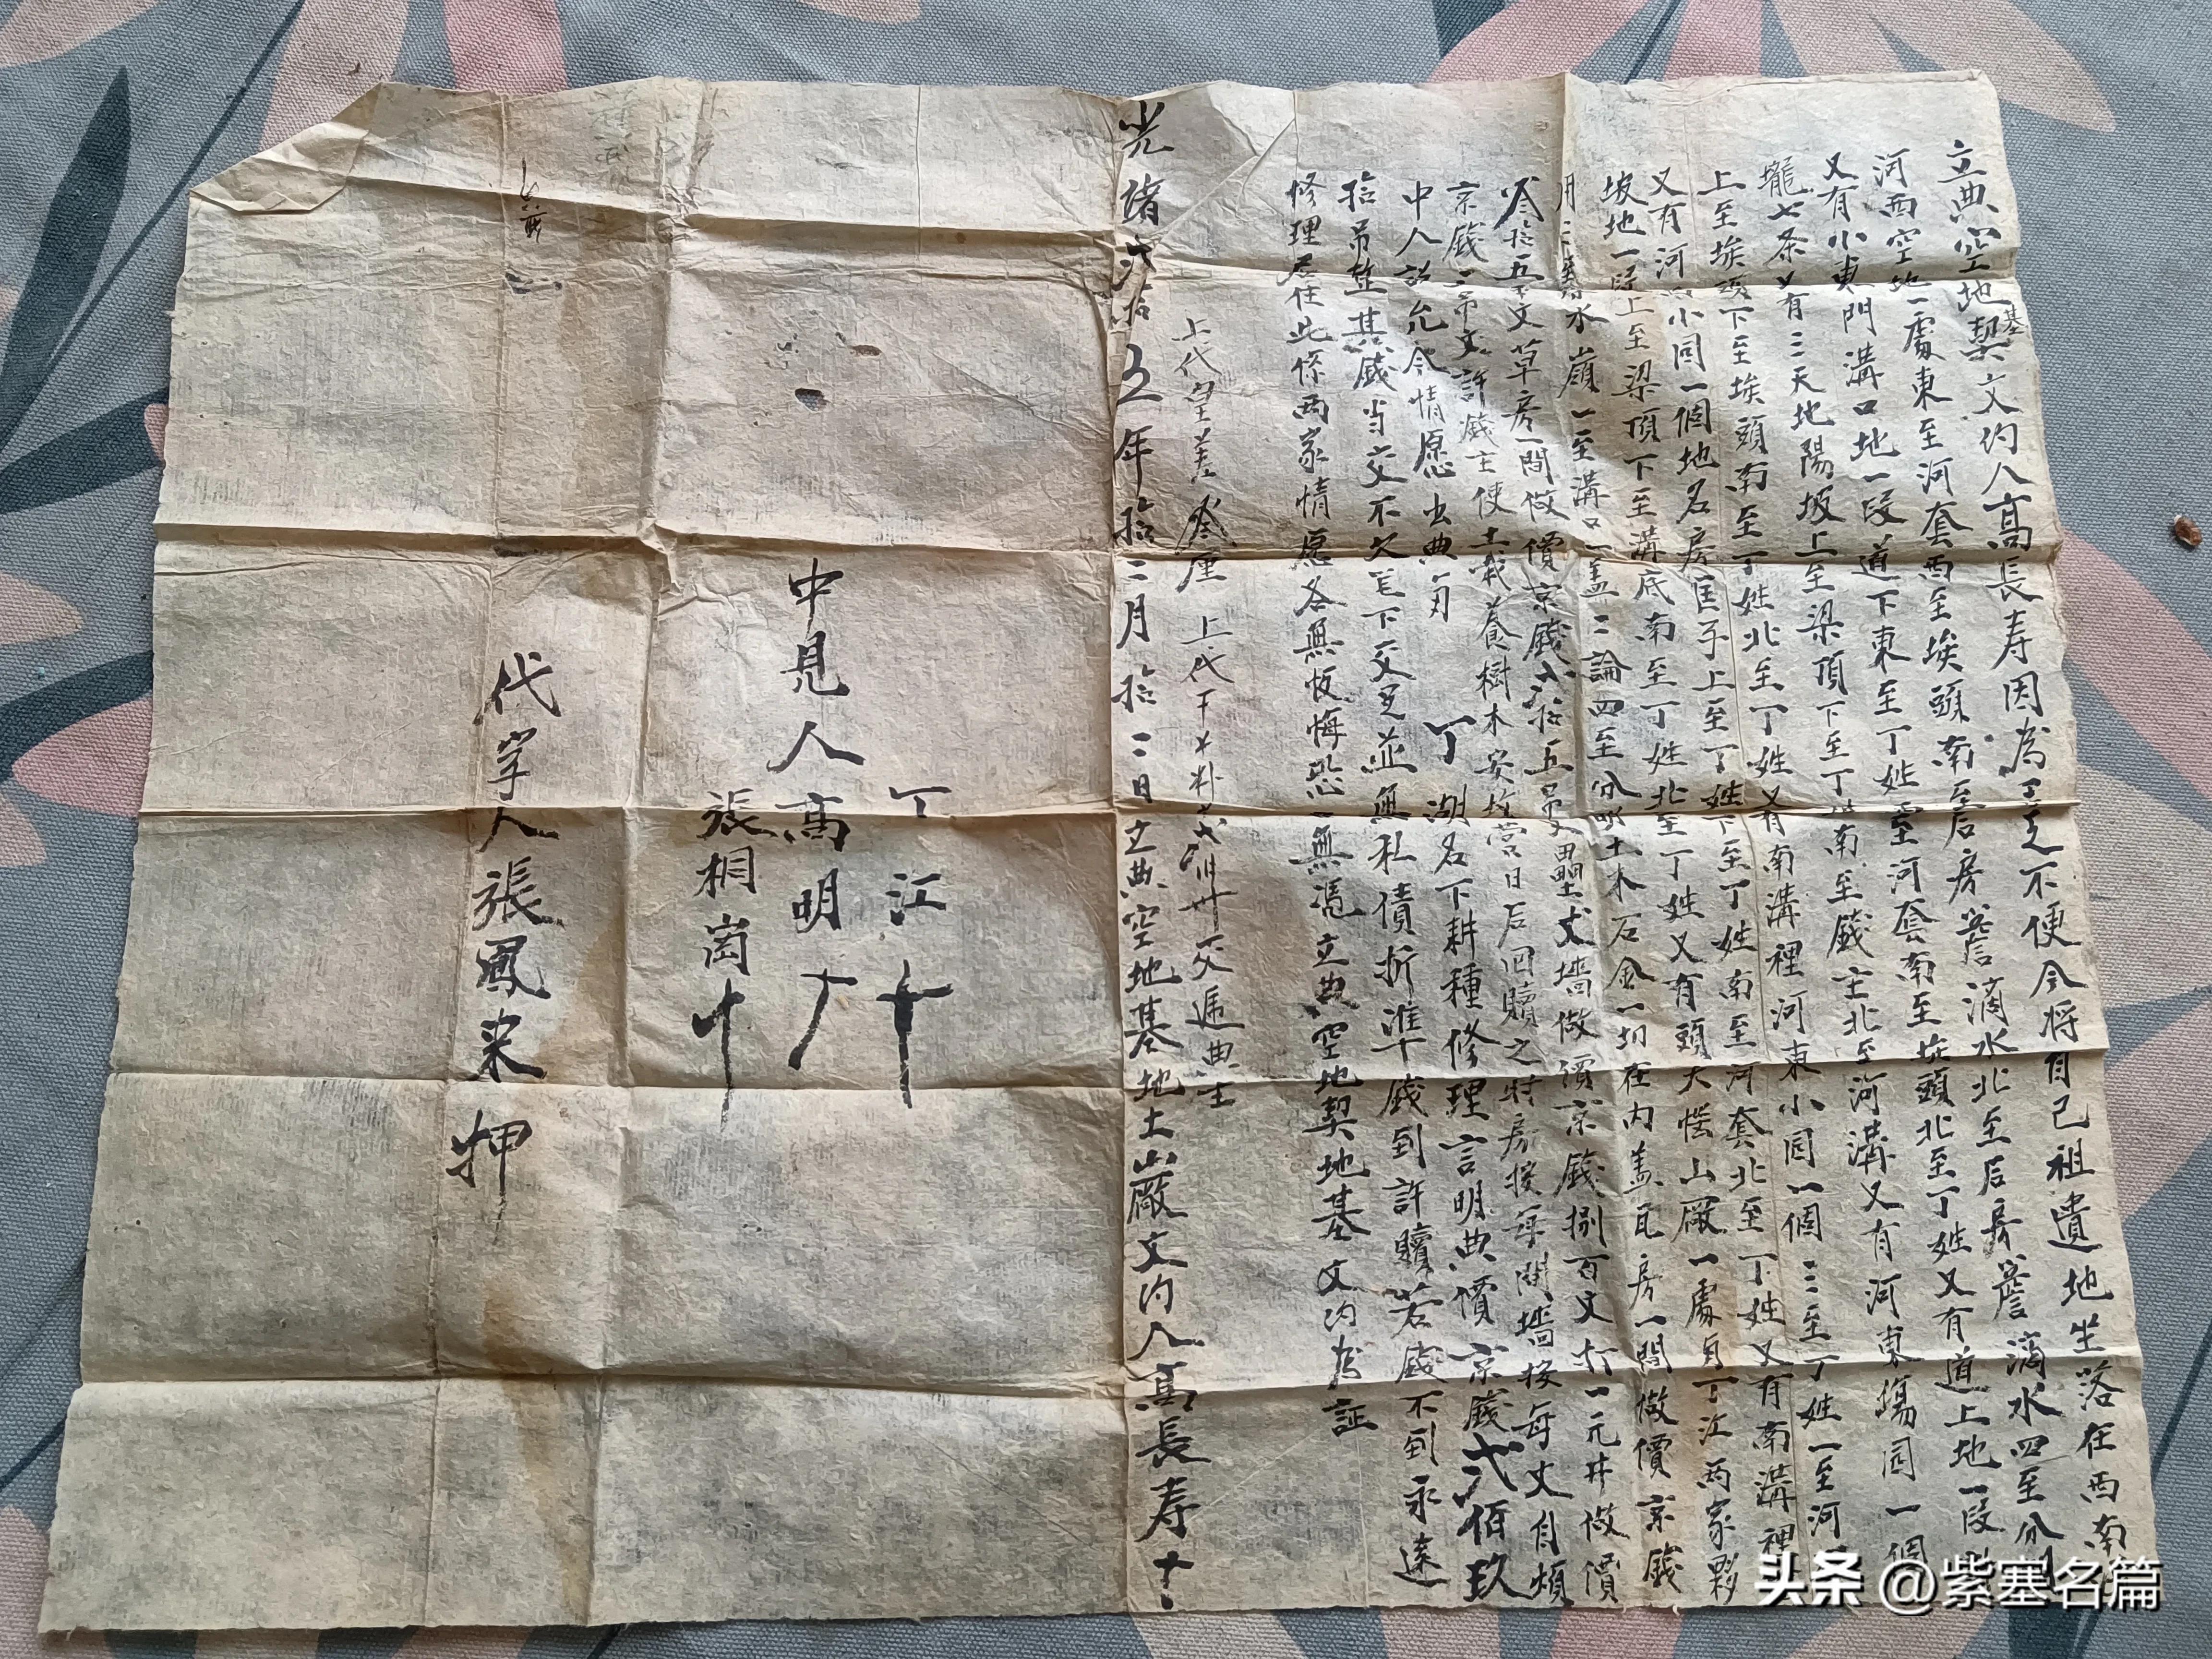 立典空地基契文约人高長寿因為不便今将自己祖遺地坐落在西南
河西空地一處東至河套西至埃頭南至后房簷滴水北至后房簷滴水四至分明
又有小東門溝口地一段道下東至丁姓西至河套南至埃頭北至丁姓又有道上地一段
壠七条又有三天地陽坡上至梁頂下至丁南至錢主北至河溝又有河東塲园一個
上至埃頭下至埃頭南至丁姓北至丁姓又有南溝裡河東小园一個三至丁姓一至河
又有河西小园一個地名房匡子上至丁姓下至丁姓南至河套北至丁姓又有南溝裡
坡地一段上至梁頂下至溝底南至丁姓北至丁姓又有頭大山廠一處与丁江两家夥
用二至水嶺一至溝口一盖二論四至分明土木石金一切在内盖瓦房一間做價京錢
叁拾五千文草房一間做價京錢弍拾五吊文壘丈墻做價京錢捌百文打一元井做價
京錢二吊文許錢主使土栽養樹木安塋日后回贖之時房按每間墻按每丈自煩
中人説允今情愿出典与丁湖名下耕種修理言明典價京錢弍佰玖
拾吊整其錢当交不欠笔下交足並無私債折準錢到許贖若錢不到永遠
修理居住此係两家情愿各無恢悔恐一無憑立典空地契地基文约為証
上代皇差叁厘 上代干木料 交逓典主
光绪弍拾五年拾二月拾二日立典空地基地土山廠文约人高長寿十
丁江十
中見人高明
張桐崗十
代字人張鳳来押
头条 @紫塞名篇